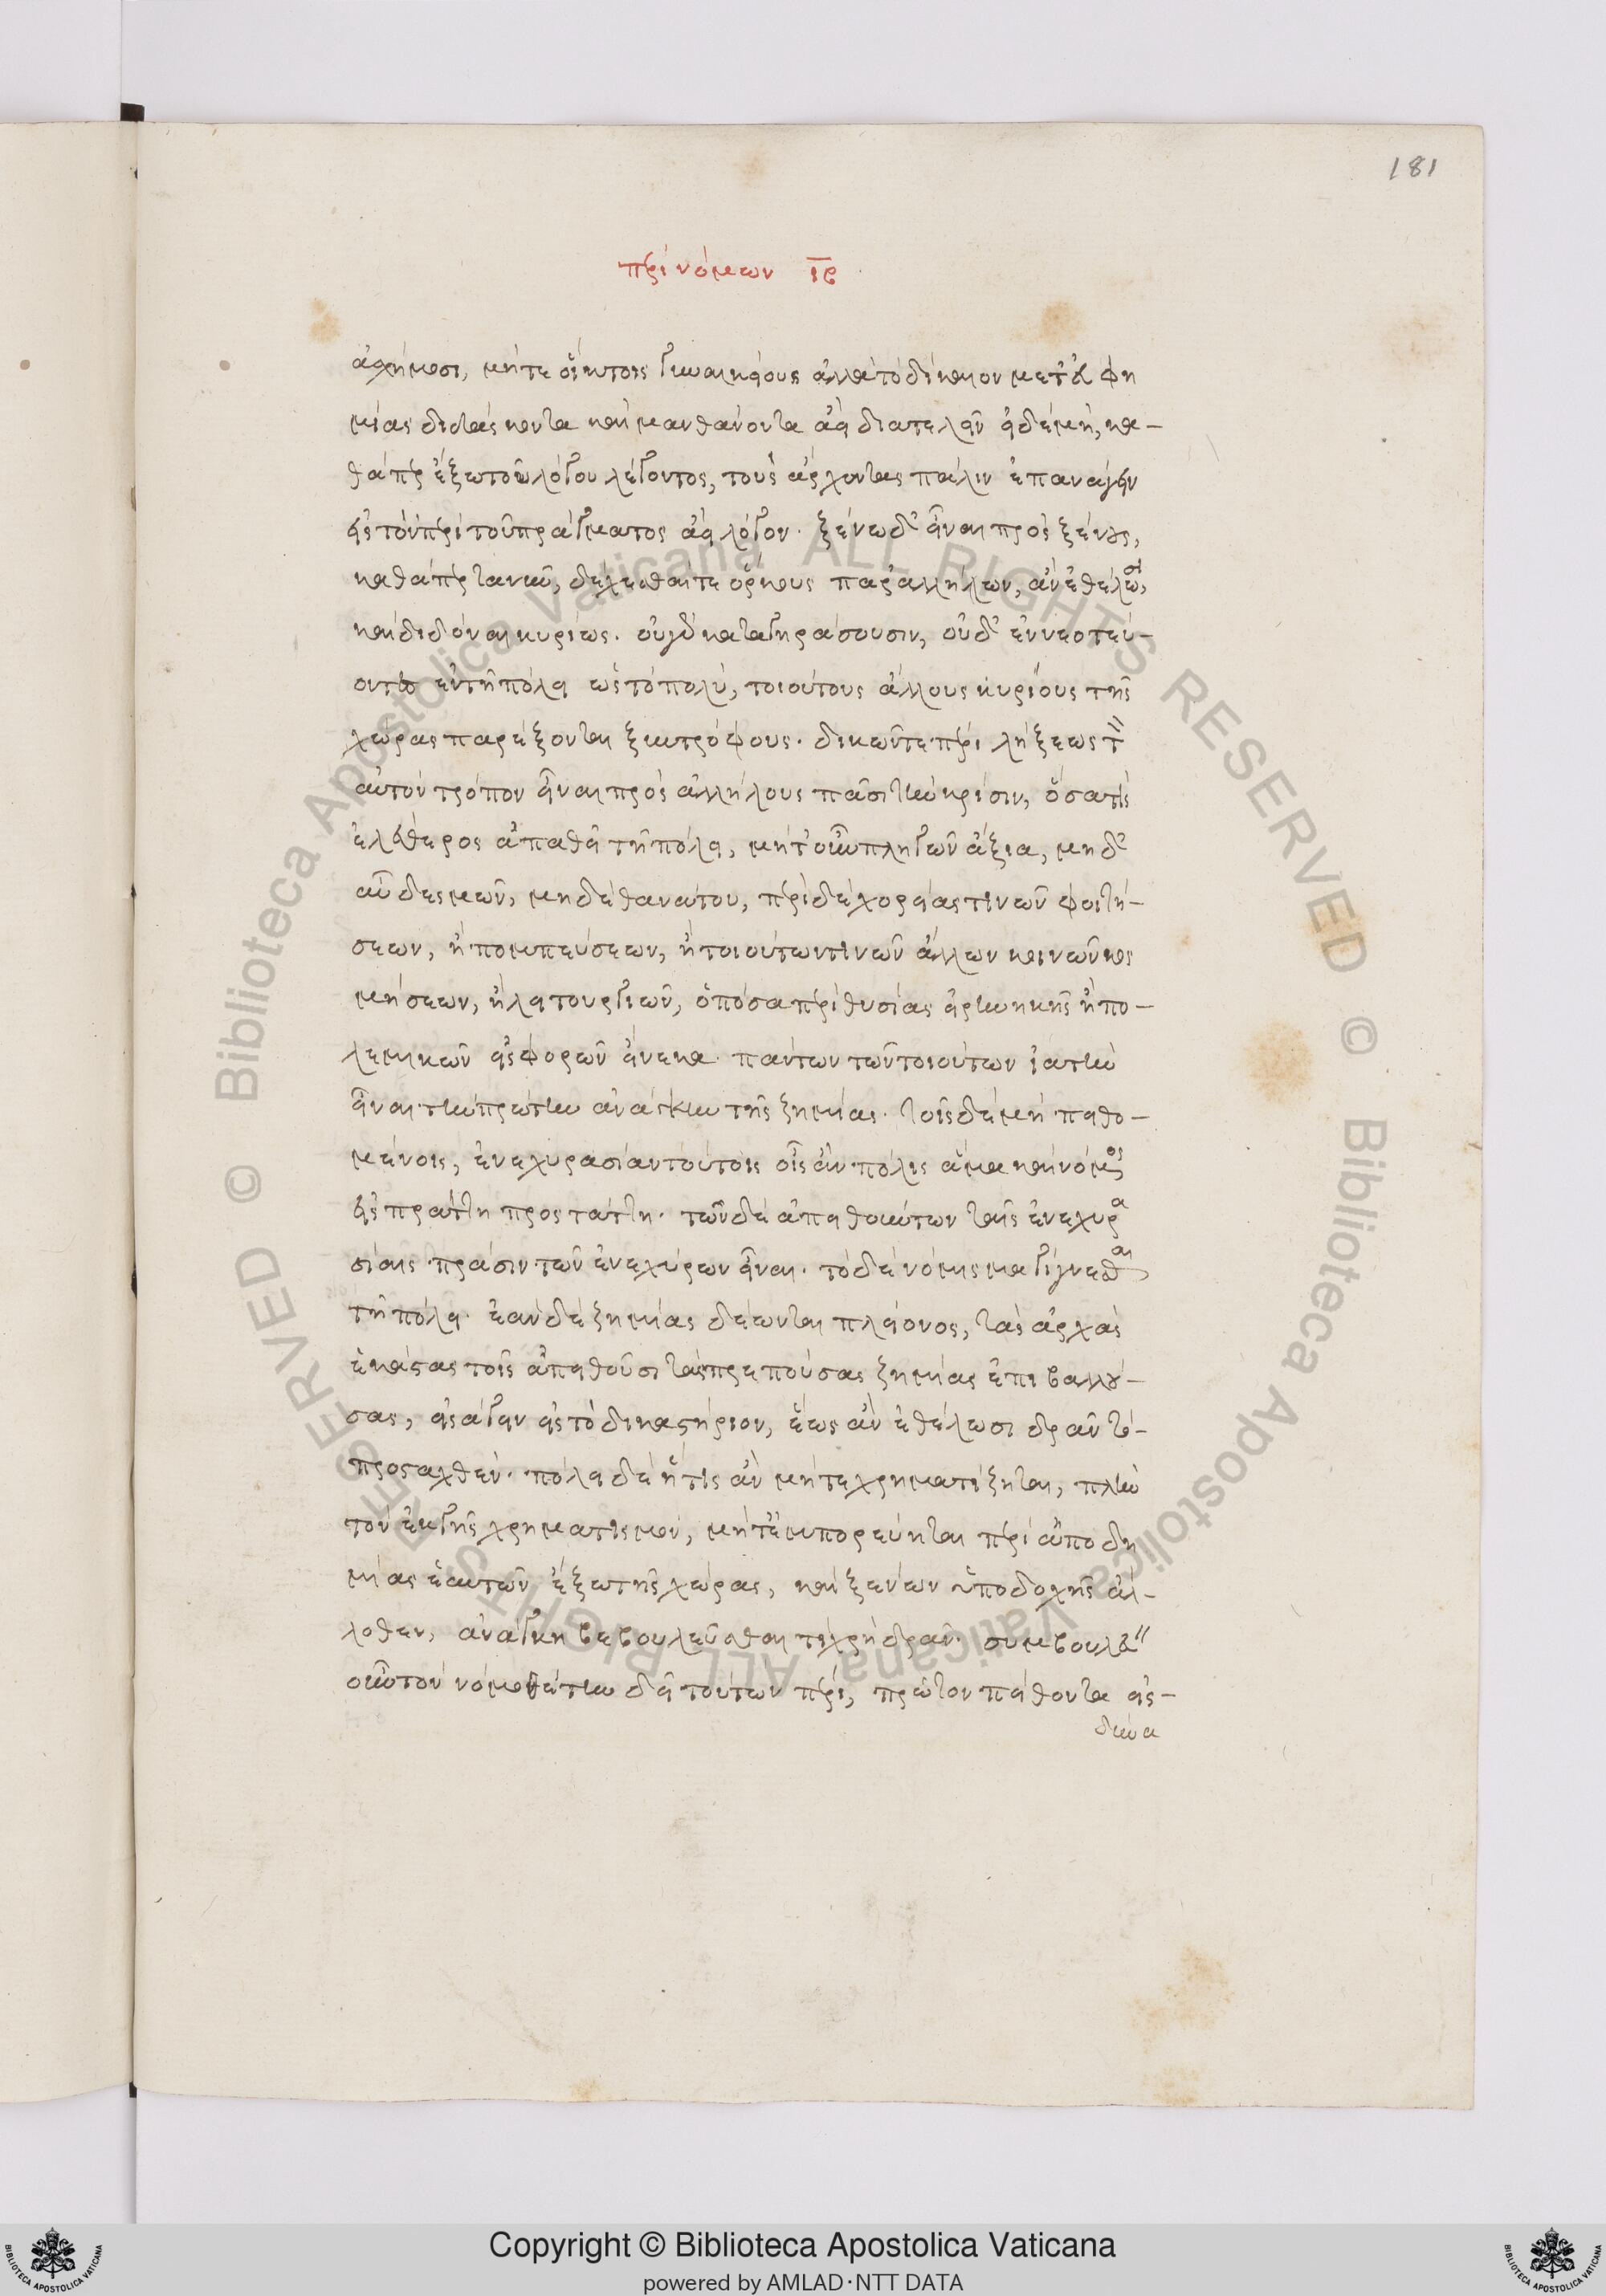 181
περὶ νόμων ιβ
ἀσχήμοσι, μήτε οἴκτοις γυναικείοις ἀλλὰ τὸ δίκαιον μετ' εὐφη
μίας διδάσκοντα καὶ μανθάνοντα ἀεὶ διατελεῖν εἰ δὲ μή, κα-
θάπερ ἔξω τοῦ λόγου λέγοντος, τοὺς ἄρχοντας πάλιν ἐπανάγειν
εἰς τὸν περὶ τοῦ πράγματος ἀεὶ λόγον. ξένω δ' εἶναι πρὸς ξένους,
καθάπερ τανῦν, δέχεσθαί τε ὅρκους παρ' ἀλλήλων, ἂν ἐθέλωσι,
καὶ διδόναι κυρίως. οὐ γὰρ καταγηράσουσιν, οὐδ' ἐννεοττεύ-
οντες ἐν τῇ πόλει ὡς τὸ πολὺ, τοιούτους ἄλλους κυρίους τῆς
χώρας παρέξονται ξυντρόφους. δικῶν τε περὶ λήξεως τὸν
αὐτὸν τρόπον εἶναι πρὸς ἀλλήλους πᾶσι τὴν κρίσιν, ὅσα τὶς
ἐλεύθερος ἀπαθεῖ τῇ πόλει, μήτ' οὖν πληγῶν ἄξια, μηδ'
αὖ δεσμῶν, μηδὲ θανάτου, περὶ δὲ χορείας τινῶν φοιτή-
σεων, ἢ πομπεύσεων, ἢ τοιούτων τινῶν ἄλλων κοινῶν κος
μήσεων, ἢ λειτουργιῶν, ὁπόσα περὶ θυσίας εἰρηνικῆς ἢ πο-
λεμικῶν εἰσφορῶν εἵνεκα πάντων τῶν τοιούτων ἰατὴν
εἶναι τὴν πρώτην ἀνάγκην τῆς ζημίας. τοῖς δὲ μὴ πειθο-
μένοις, ἐνεχυρασίαν τούτοις οἷς ἂν πόλις ἅμα καὶ νόμος
εἰσπράττη προστάττη. τῶν δὲ ἀπειθούντων ταῖς ἐνεχυρα
σίαις πρᾶσιν τῶν ἐνεχύρων εἶναι. τὸ δὲ νόμισμα γίγνεσθαι
τῇ πόλει. ἐὰν δὲ ζημίας δέωνται πλείονος, τὰς ἀρχὰς
ἑκάστας τοῖς ἀπειθοῦσι τὰς πρεπούσας ζημίας ἐπιβαλλού-
σας, εἰσάγειν εἰς τὸ δικαστήριον, ἕως ἂν ἐθέλωσι δρᾶν τὸ
προσταχθέν. πόλει δὲ ἥτις ἂν μήτε χρηματίζηται, πλὴν
τὸν ἐκ γῆς χρηματισμόν, μήτ' ἐμπορεύηται περὶ ἀποδη
μίας ἑαυτῶν ἔξω τῆς χώρας, καὶ ξένων ὑποδοχῆς ἀλ-
λοθεν, ἀνάγκη βεβουλεῦσθαι τί χρὴ δρᾶν. συμβουλεύειν
οὖν τὸν νομοθέτην δεῖ τούτων πέρι, πρῶτον πείθοντα εἰς-
δύνα